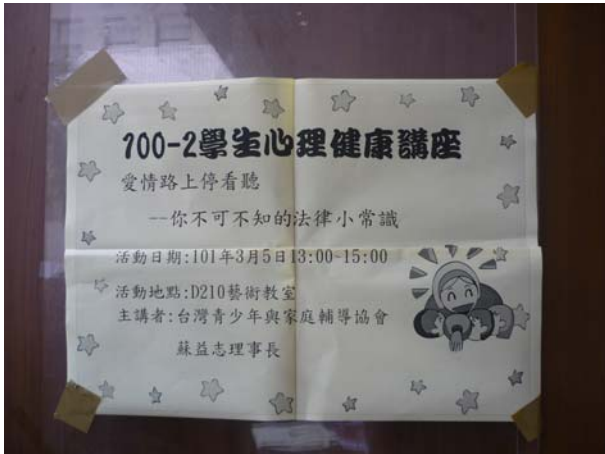 100-2學生心理健康講座
愛情路上停看聽
--你不可不知的法律小常識
活動日期:101年3月5日13:00-15:00
活動地點:D210藝術教室
主講者:台灣青少年與家庭輔導協會
蘇益志理事長